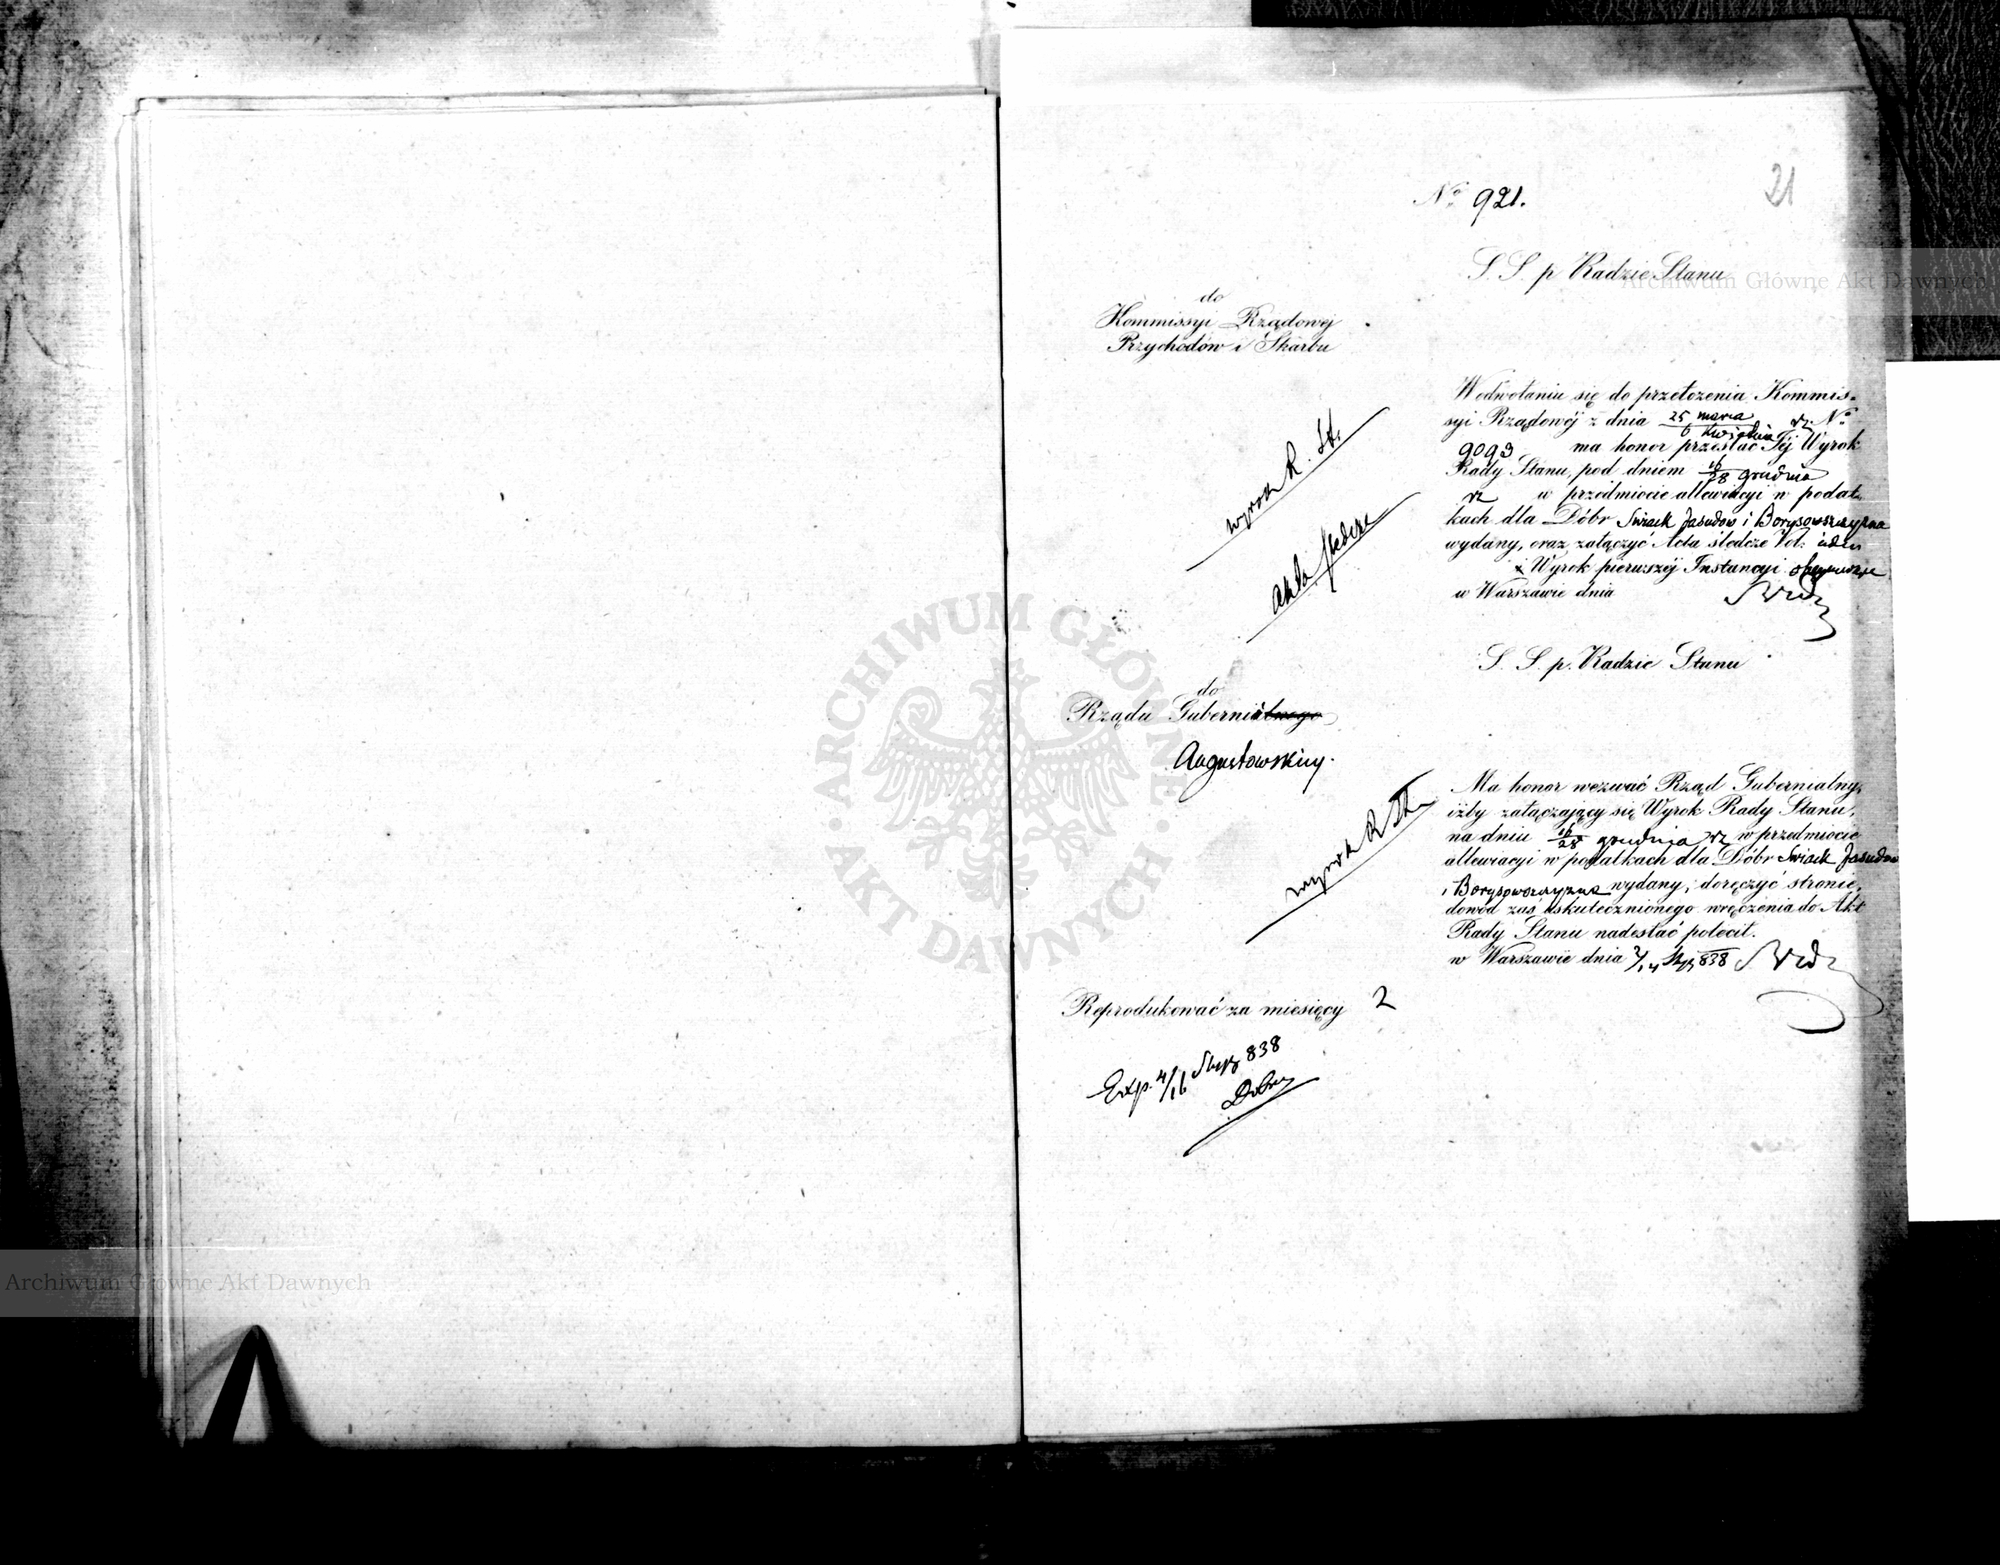 21
No 921.
S. S. p Radzie Stanu
do
Kommissyi Rządowej
Przychodów i Skarbu
W odwołaniu się do przełożenia Kommis-
syi Rządowéj z dnia 25 marca / 6 kwietnia rz. No
9093 ma honor przesłać Jéj Wyrok
Rady Stanu, pod dniem 16/28 grudnia
rz w przedmiocie allewiacyi w podat-
kach dla Dóbr Swiack Jasudow i Borysowszczyzna
wydany, oraz załączyć Acta śledcze Vol:
i Wyrok pierwszéj Instancyi
w Warszawie dnia
wyrok R. St.
akta śledcze
S. S. p. Radzie Stanu
do
Rządu Gubernialnego
Augustowskiey.
Ma honor wezwać Rząd Gubernialny,
iżby załączający się Wyrok Rady Stanu,
na dniu 16/28 grudnia rz w przedmiocie
allewiacyi w podatkach dla Dóbr Swiack Jasudow
i Borysowszczyzna wydany, doręczyć stronie,
dowód zaś uskutecznionego wręczenia do Akt
Rady Stanu nadesłać polecił.
w Warszawie dnia 2/14 Stycz 838
wyrok R St.
Reprodukować za miesięcy 2
Exp. 4/16 Stycz 838
ARCHIWUM GŁÓWNE AKT DAWNYCH
Archiwum Główne Akt Dawnych
Archiwum Główne Akt Dawnych